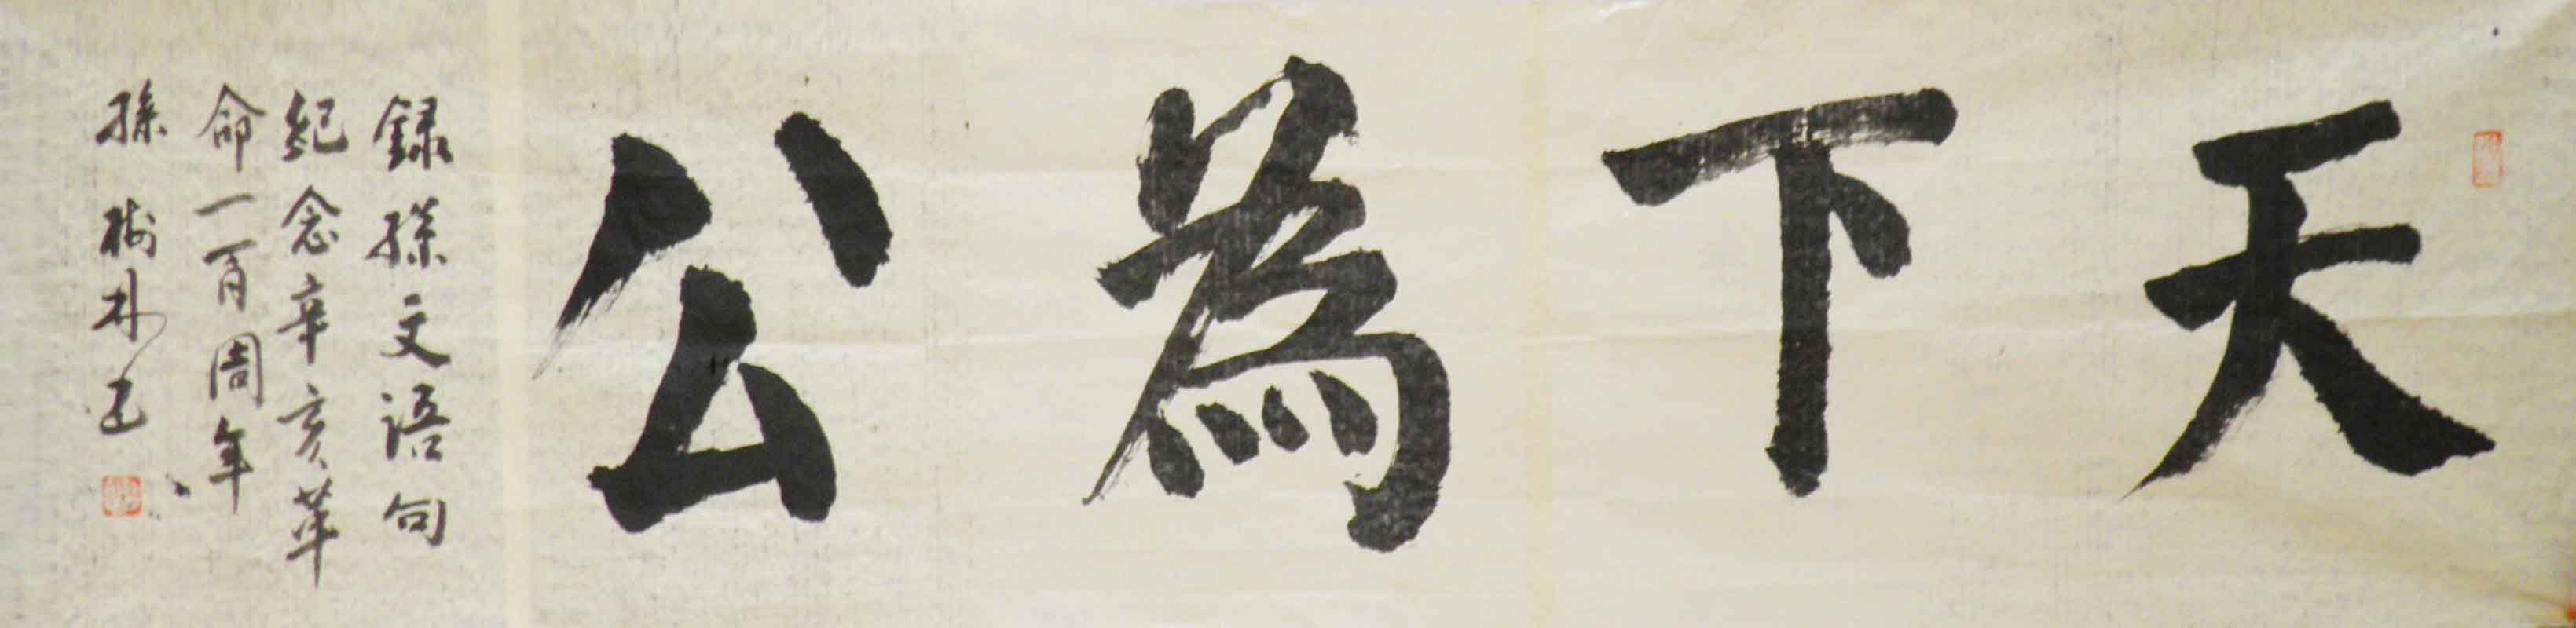 天下為公
録孫文语句
纪念辛亥革
命一百周年
孫樹林书